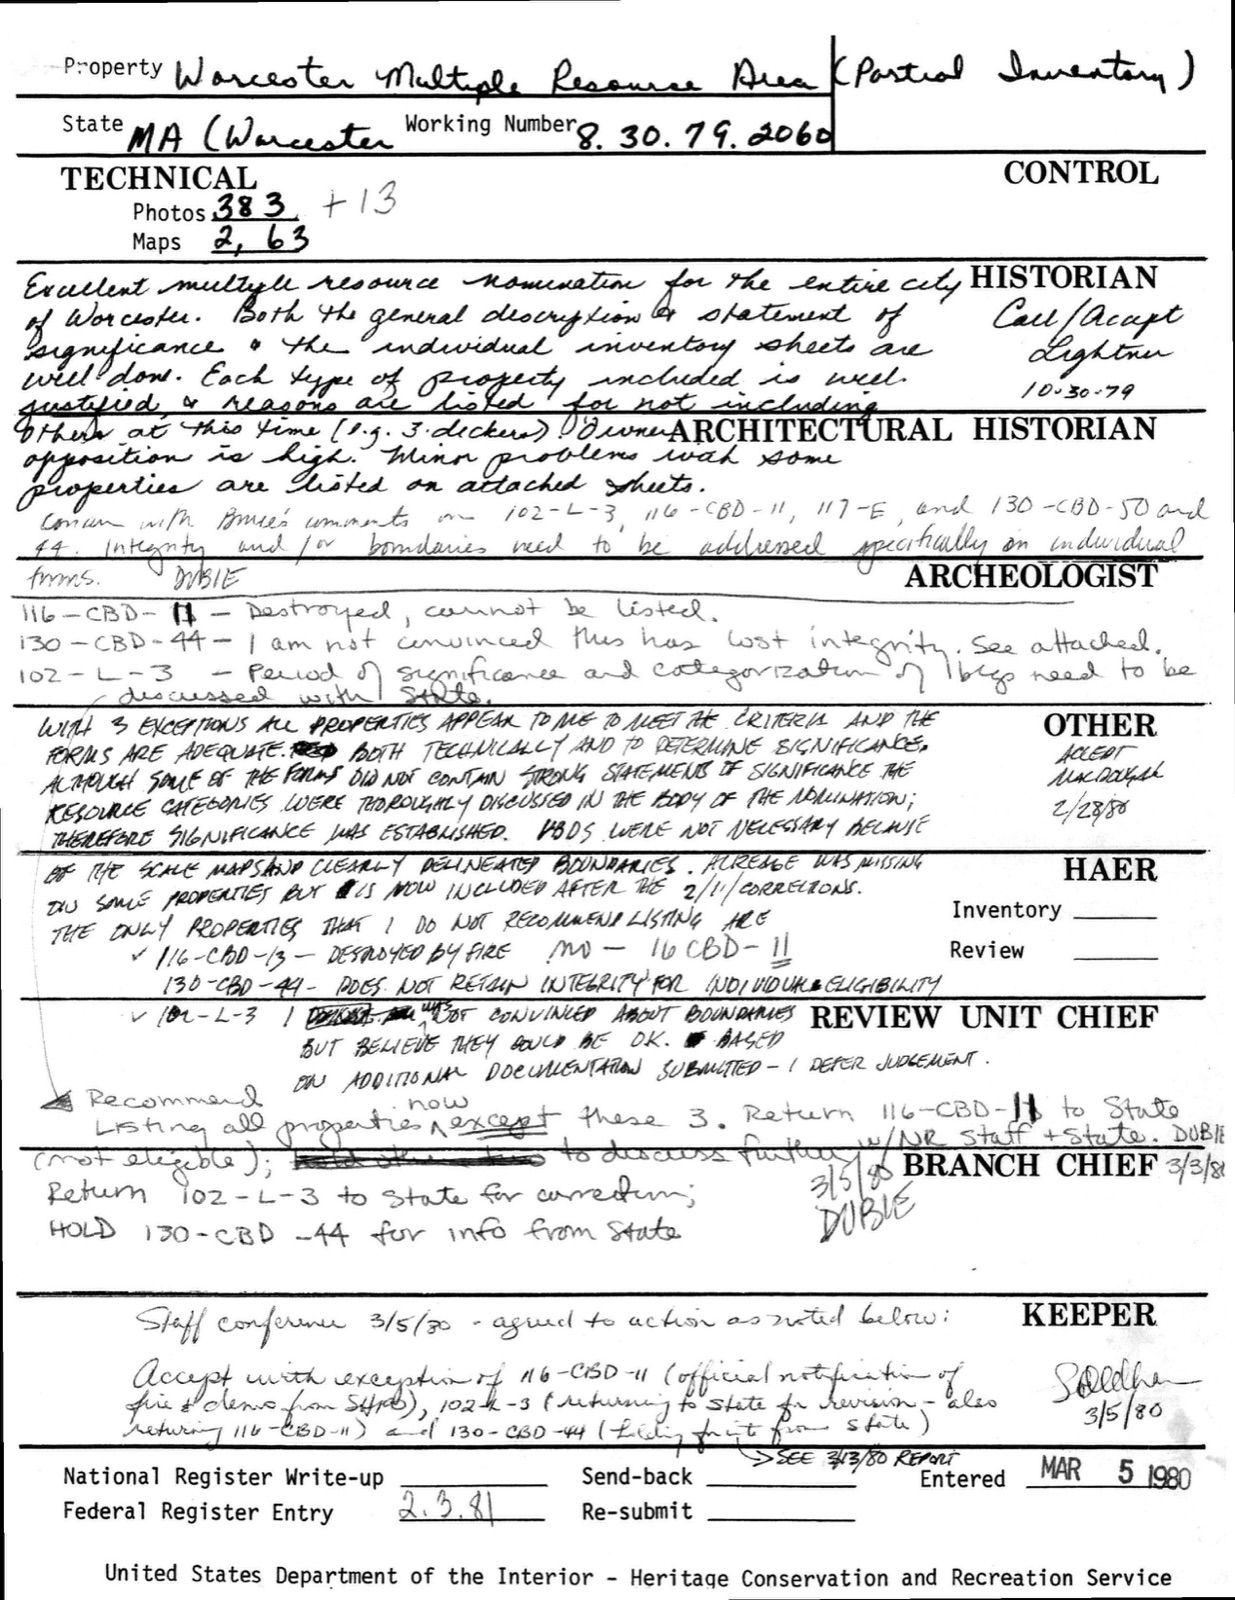 Property Worcester Multiple Resource Area (Partial Inventory)
State MA (Worcester Working Number 8.30.79.2060
TECHNICAL CONTROL
Photos 383 + 13
Maps 2, 63
Excellent multiple resource nomination for the entire city HISTORIAN
of Worcester. Both the general description & statement of Call/Accept
significance & the individual inventory sheets are Lightner
well done. Each type of property included is well 10-30-79
justified & reasons are listed for not including
others at this time (e.g. 3-deckers). Owner ARCHITECTURAL HISTORIAN
opposition is high. Minor problems with some
properties are listed on attached sheets.
Concur with Bruce's comments on 102-L-3, 116-CBD-11, 117-E, and 130-CBD-50 and
44. Integrity and/or boundaries need to be addressed specifically on individual
forms. DUBIE ARCHEOLOGIST
116-CBD-11 - Destroyed, cannot be listed.
130-CBD-44 - I am not convinced this has lost integrity. See attached.
102-L-3 - Period of significance and categorization of bldgs need to be
discussed with State.
WITH 3 EXCEPTIONS ALL PROPERTIES APPEAR TO ME TO MEET THE CRITERIA AND THE OTHER
FORMS ARE ADEQUATE BOTH TECHNICALLY AND TO DETERMINE SIGNIFICANCE. ACCEPT
ALTHOUGH SOME OF THE FORMS DID NOT CONTAIN STRONG STATEMENTS OF SIGNIFICANCE THE MACDOUGAL
RESOURCE CATEGORIES WERE THOROUGHLY DISCUSSED IN THE BODY OF THE NOMINATION; 2/28/80
THEREFORE SIGNIFICANCE WAS ESTABLISHED. VBDS WERE NOT NECESSARY BECAUSE
OF THE SCALE MAPS AND CLEARLY DELINEATED BOUNDARIES. ACREAGE WAS MISSING HAER
ON SOME PROPERTIES BUT IS NOW INCLUDED AFTER THE 2/11/ CORRECTIONS.
THE ONLY PROPERTIES THAT I DO NOT RECOMMEND LISTING ARE Inventory
✓ 116-CBD-13 - DESTROYED BY FIRE NO - 116 CBD-11 Review
130-CBD-44- DOES NOT RETAIN INTEGRITY FOR INDIVIDUAL ELIGIBILITY
✓ 102-L-3 I was NOT CONVINCED ABOUT BOUNDARIES REVIEW UNIT CHIEF
BUT BELIEVE THEY COULD BE OK. BASED
ON ADDITIONAL DOCUMENTATION SUBMITTED - I DEFER JUDGEMENT.
Recommend
Listing all properties now except these 3. Return 116-CBD-11 to State
(not eligible); to discuss further w/NR Staff + State. DUBIE
3/5/80 BRANCH CHIEF 3/3/80
Return 102-L-3 to State for correction; DUBIE
HOLD 130-CBD-44 for info from State
Staff conference 3/5/80 - agreed to action as noted below: KEEPER
Accept with exception of 116-CBD-11 (official notification of
fire & demo from SHPO), 102-L-3 (returning to State for revision - also 3/5/80
returning 116-CBD-11) and 130-CBD-44 (holding for info from State)
→ SEE 3/13/80 REPORT
National Register Write-up Send-back Entered MAR 5 1980
Federal Register Entry 2.3.81 Re-submit
United States Department of the Interior - Heritage Conservation and Recreation Service